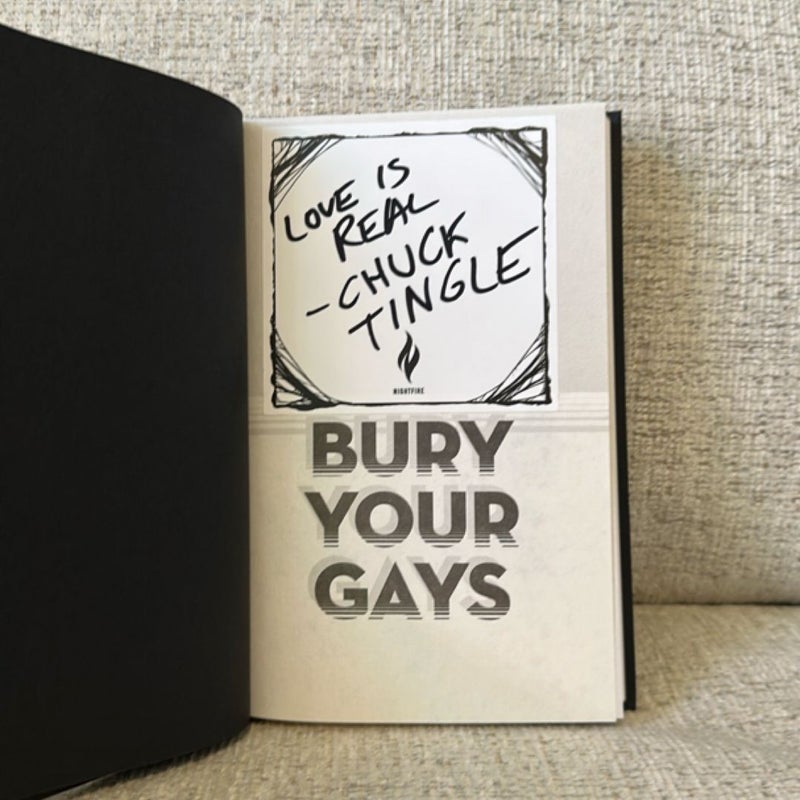 LOVE IS
REAL
-CHUCK
TINGLE
NIGHTFIRE
BURY
YOUR
GAYS